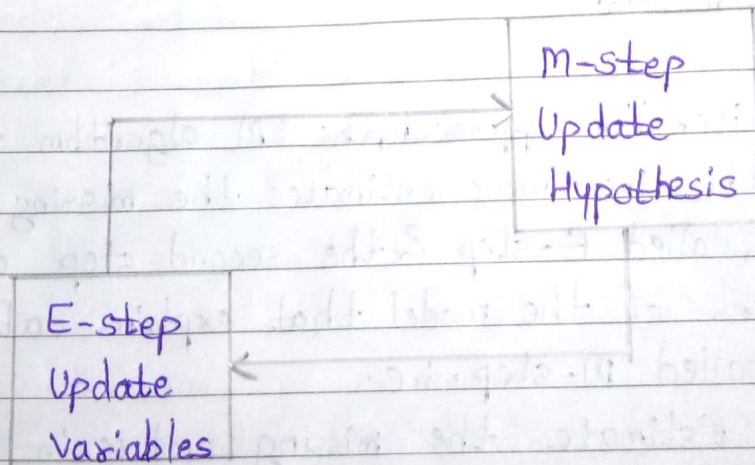 M-step
Update
Hypothesis
E-step
Update
Variables